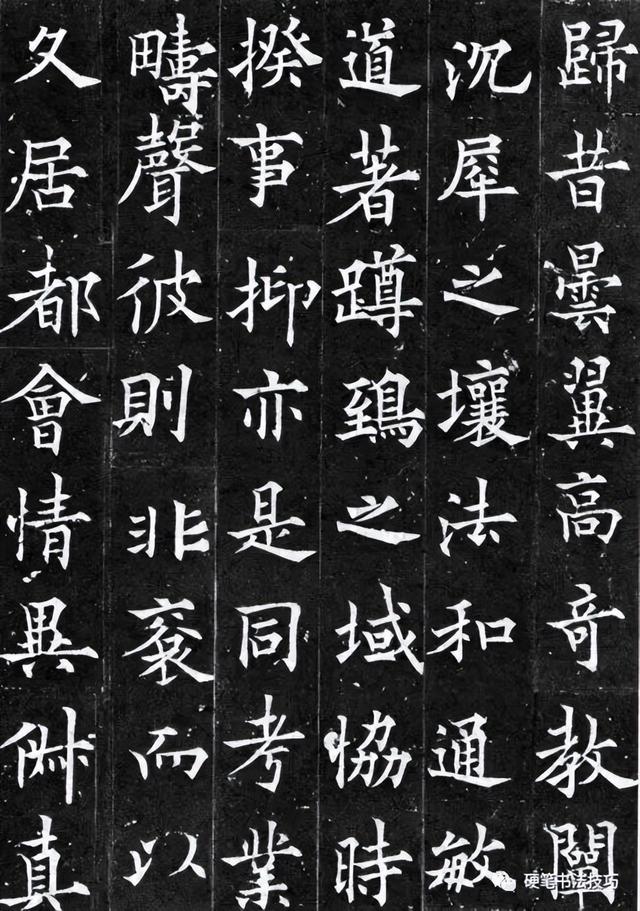 歸昔曇翼高奇教闡
沉犀之壤法和通敏
道著蹲鵄之域恊時
揆事抑亦是同考業
疇聲彼則非衮而以
久居都會情異俶真
硬笔书法技巧